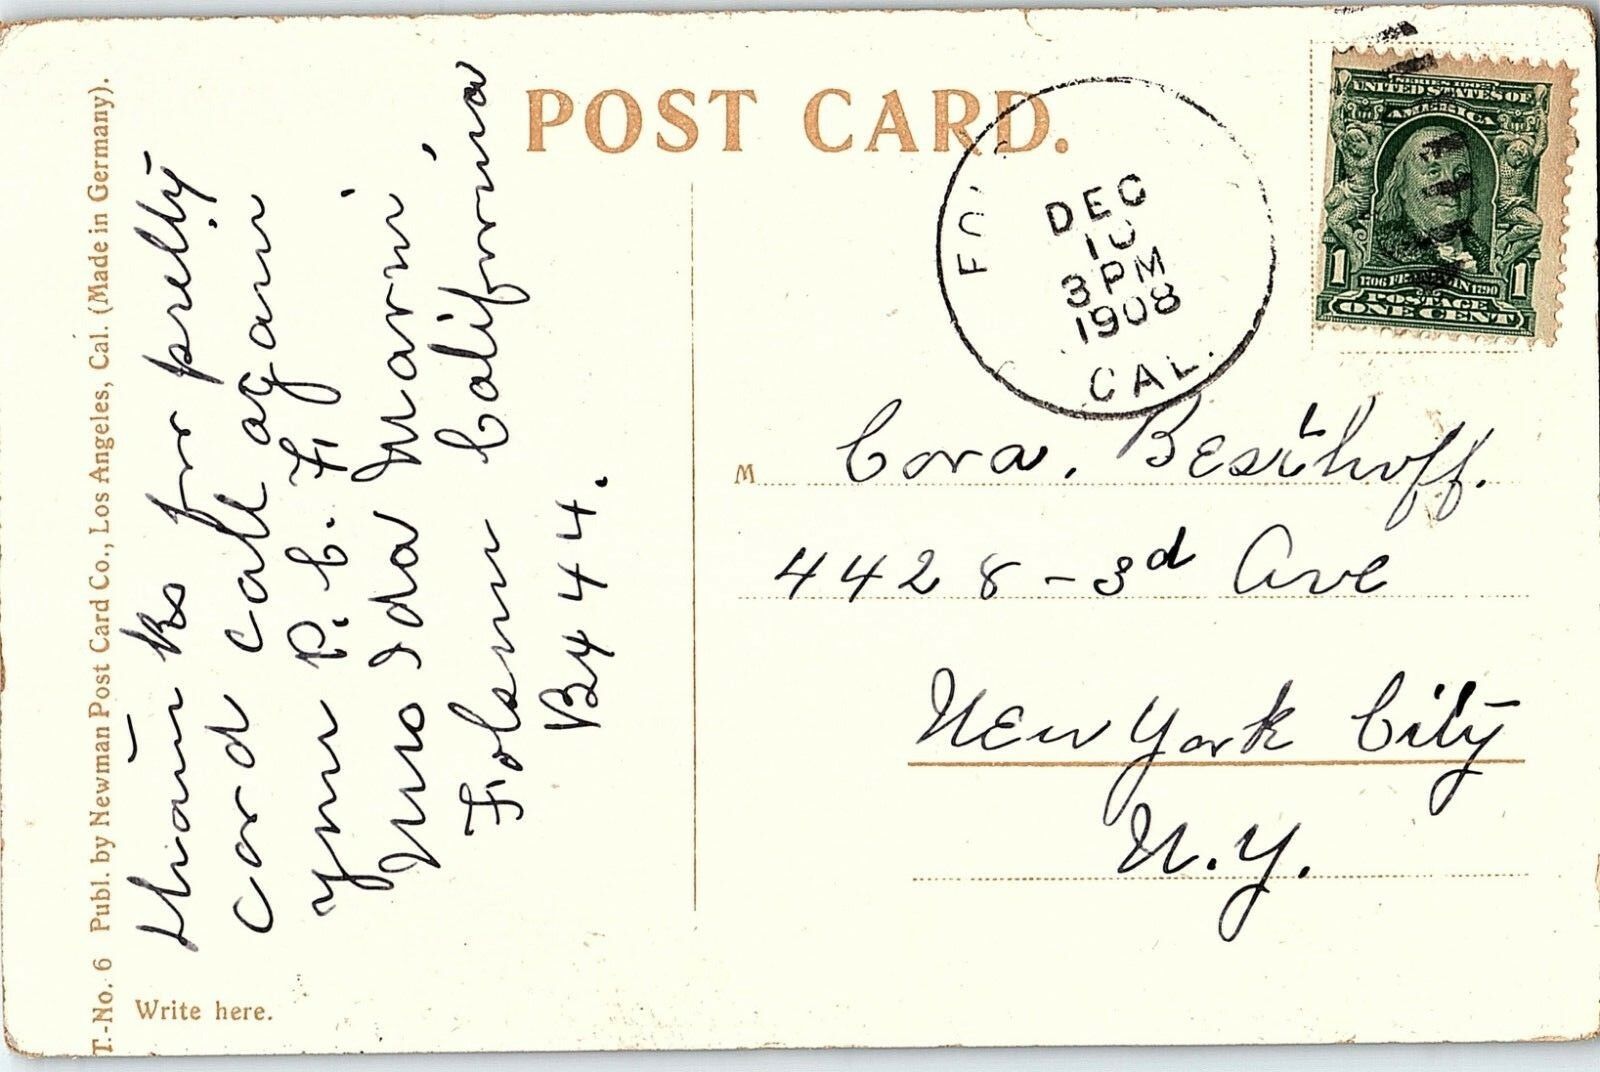 POST CARD.
T.-No. 6 Publ. by Newman Post Card Co., Los Angeles, Cal. (Made in Germany).
Write here.
thain ks for prelty
card call again
your P. C. F.
Miss Ida Marini
Folsom California
Bx 44.
DEC
10
3 PM
1908
CAL.
UNITED STATES OF
AMERICA
1 1
1706 FRANKLIN 1790
POSTAGE
ONE CENT
M Cora. Besthoff.
4428 - 3d Ave
New York City
N.Y.